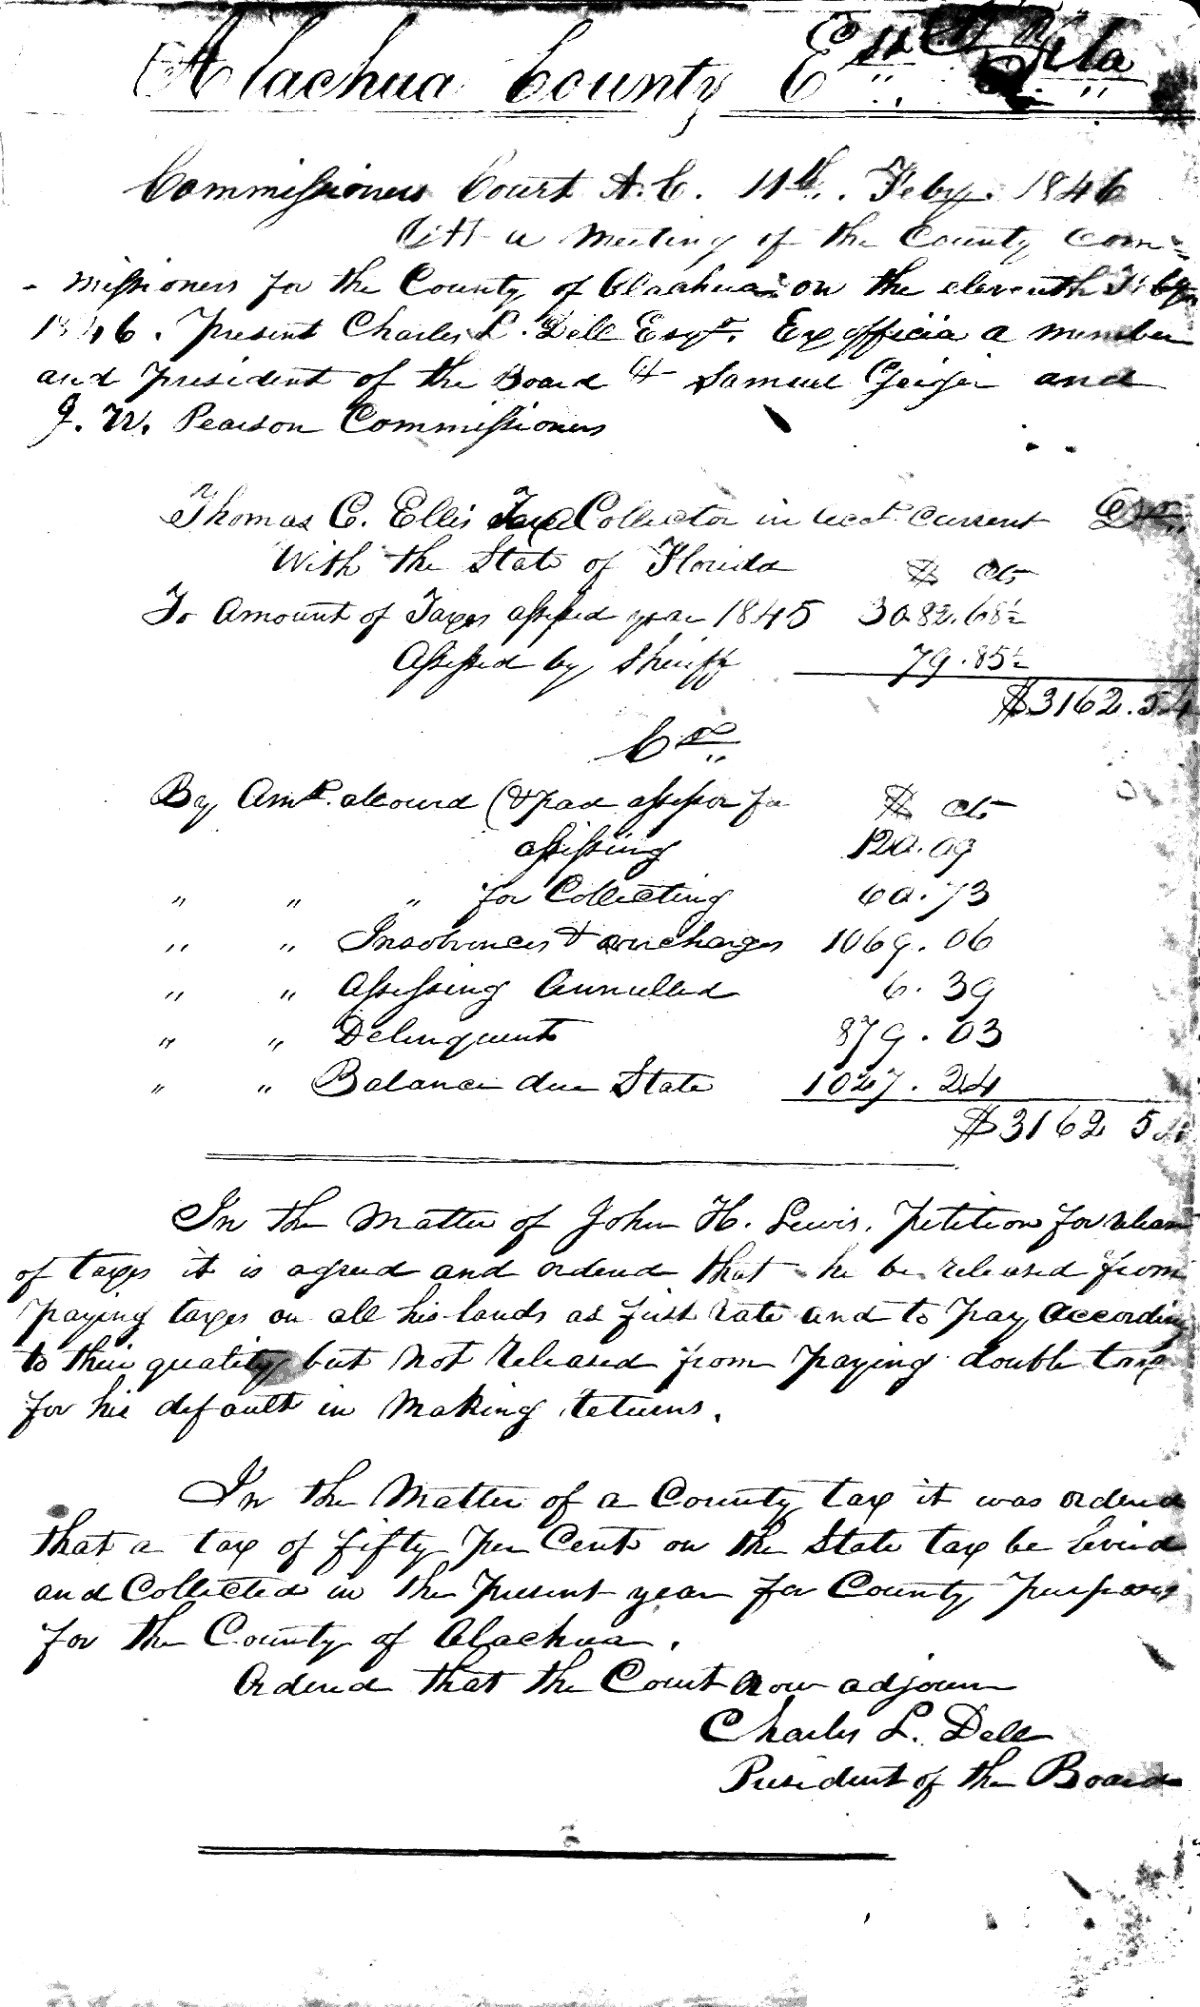 Alachua County E. Fla
Commissioners Court A.C. 11th. Feby. 1846
At a meeting of the County Com=
- missioners for the County of Alachua on the eleventh Feby
1846. Present Charles L. Dell Esqr. Ex officia a member
and president of the Board & Samuel Geiger and
J. W. Pearson Commissioners
Thomas C. Ellis Tax Collector in acct current Dr.
With the State of Florida $ cts
To Amount of Taxes assessed year 1845 3082.68½
Assessed by Sheriff 79.85½
$3162.54
Cr
By Amt. allowed (& pad assessor for $ cts
assessing 120.09
" " " for Collecting 60.73
" " Insolvences & overcharges 1069.06
" " Assessing Annulled 6.39
" " Delinquents 879.03
" " Balance due State 1027.24
$3162 54
In the Matter of John H. Lewis. Petition for release
of taxes it is agreed and ordered that he be released from
paying taxes on all his lands as first rate and to pay according
to their quality but not released from paying double tax
for his default in making returns.
In the Matter of a County tax it was ordered
that a tax of fifty per Cent on the State tax be levied
and Collected in the present year for County purposes
for the County of Alachua.
Ordered that the Court now adjourn
Charles L. Dell
President of the Board